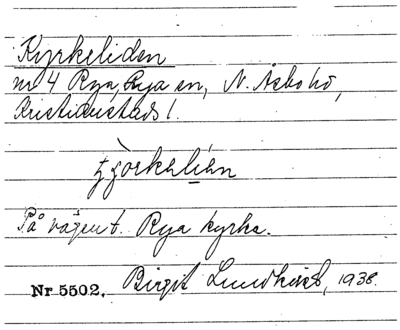 Kyrkeliden
nr 4 Rya, Rya sn, N. Åsbo hd,
Kristianstads l.
På vägen t. Rya kyrka.
Nr 5502. Birgit Lundkvist, 1938.